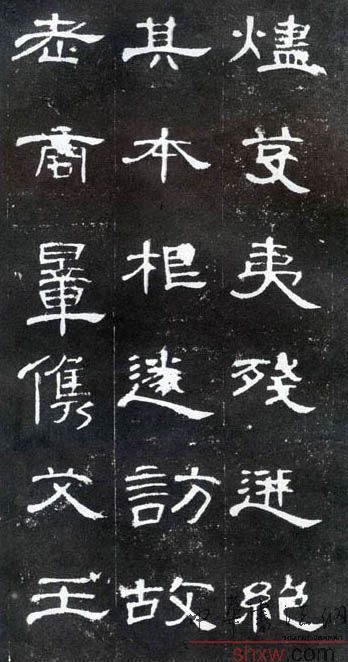 燼芟夷殘迸絶
其本根遂訪故
老商量儁艾王
shxw.com